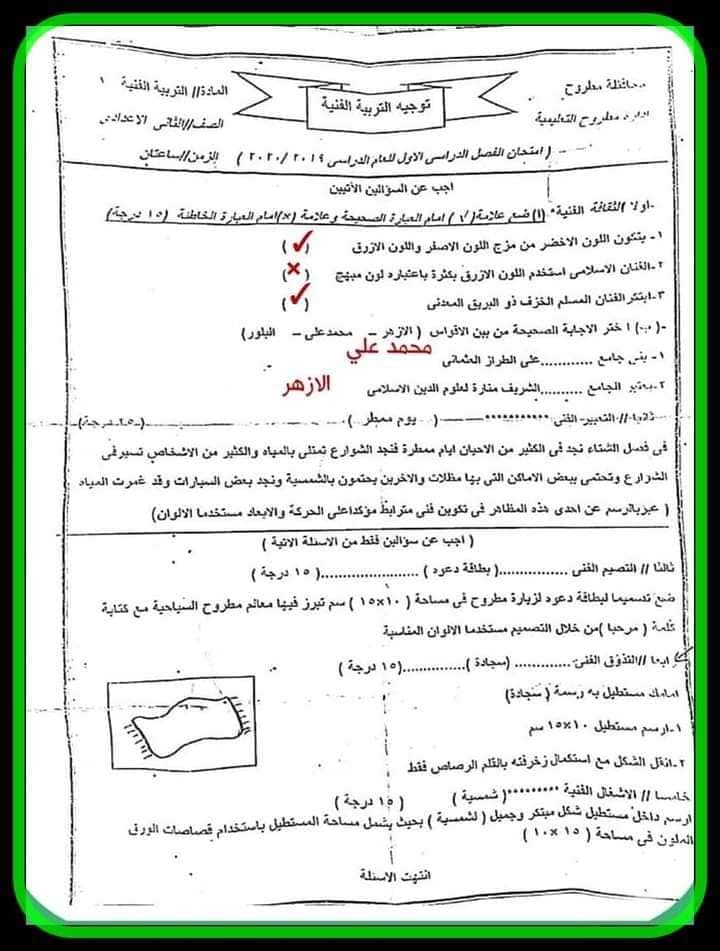 محافظة مطروح
ادارة مطروح التعليمية
توجيه التربية الفنية
المادة// التربية الفنية
الصف//الثانى الاعدادى
( امتحان الفصل الدراسى الاول للعام الدراسى ٢٠١٩ /٢٠٢٠ ) الزمن//ساعتان
اجب عن السؤالين الأتيين
اولا //الثقافة الفنية* (أ) ضع علامة( √ ) امام العبارة الصحيحة وعلامة (×)امام العبارة الخاطئة (١٥ درجة)
١- يتكون اللون الاخضر من مزج اللون الاصفر واللون الازرق (✓)
٢-الفنان الاسلامى استخدم اللون الازرق بكثرة باعتباره لون مبهج (×)
٣-ابتكر الفنان المسلم الخزف ذو البريق المعدنى (✓)
-( ب) اختر الاجابة الصحيحة من بين الاقواس ( الازهر – محمدعلى – البلور)
محمد علي
١- بنى جامع ............على الطراز العثمانى
الازهر
٢-يعتبر الجامع ..........الشريف منارة لعلوم الدين الاسلامى
ثانيا// التعبير الفنى *********** ( يوم ممطر ) (٢٥ درجة)
فى فصل الشتاء نجد فى الكثير من الاحيان ايام ممطرة فنجد الشوارع تمتلى بالمياه والكثير من الاشخاص تسير فى
الشوارع وتحتمى ببعض الاماكن التى بها مظلات والاخرين يحتمون بالشمسية ونجد بعض السيارات وقد غمرت المياه
( عبربالرسم عن احدى هذه المظاهر فى تكوين فنى مترابط مؤكداعلى الحركة والابعاد مستخدما الالوان)
( اجب عن سؤالين فقط من الاسئلة الاتية )
ثالثا // التصيم الفنى ...............( بطاقة دعوه ) ......................( ١٥ درجة )
ضع تصميما لبطاقة دعوه لزيارة مطروح فى مساحة ( ١٠×١٥ ) سم تبرز فيها معالم مطروح السياحية مع كتابة
كلمة ( مرحبا )من خلال التصميم مستخدما الالوان المناسبة
رابعا //التذوق الفنى ............. (سجادة )...............(١٥ درجة )
امامك مستطيل به رسمة ( سجادة)
١-ارسم مستطيل ١٠×١٥ سم
٢-انقل الشكل مع استكمال زخرفته بالقلم الرصاص فقط
خامسا // الاشغال الفنية *********( شمسية ) ( ١٥ درجة )
ارسم داخل مستطيل شكل مبتكر وجميل ( لشمسية ) بحيث يشمل مساحة المستطيل باستخدام قصاصات الورق
الملون فى مساحة ( ١٥ ×١٠ )
انتهت الاسئلة